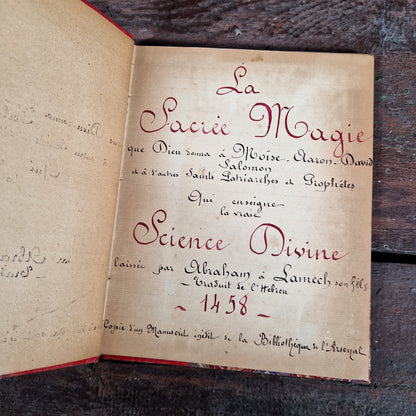 La
Sacrée Magie
que Dieu donna à Moïse. Aaron. David
Salomon
et à d'autres Saints Patriarches et Prophètes
Qui enseigne
la vraie
Science Divine
laissée par Abraham à Lamech son fils
Traduit de l'Hébreu
- 1458 -
Copie d'un Manuscrit inédit de la Bibliothèque de l'Arsenal